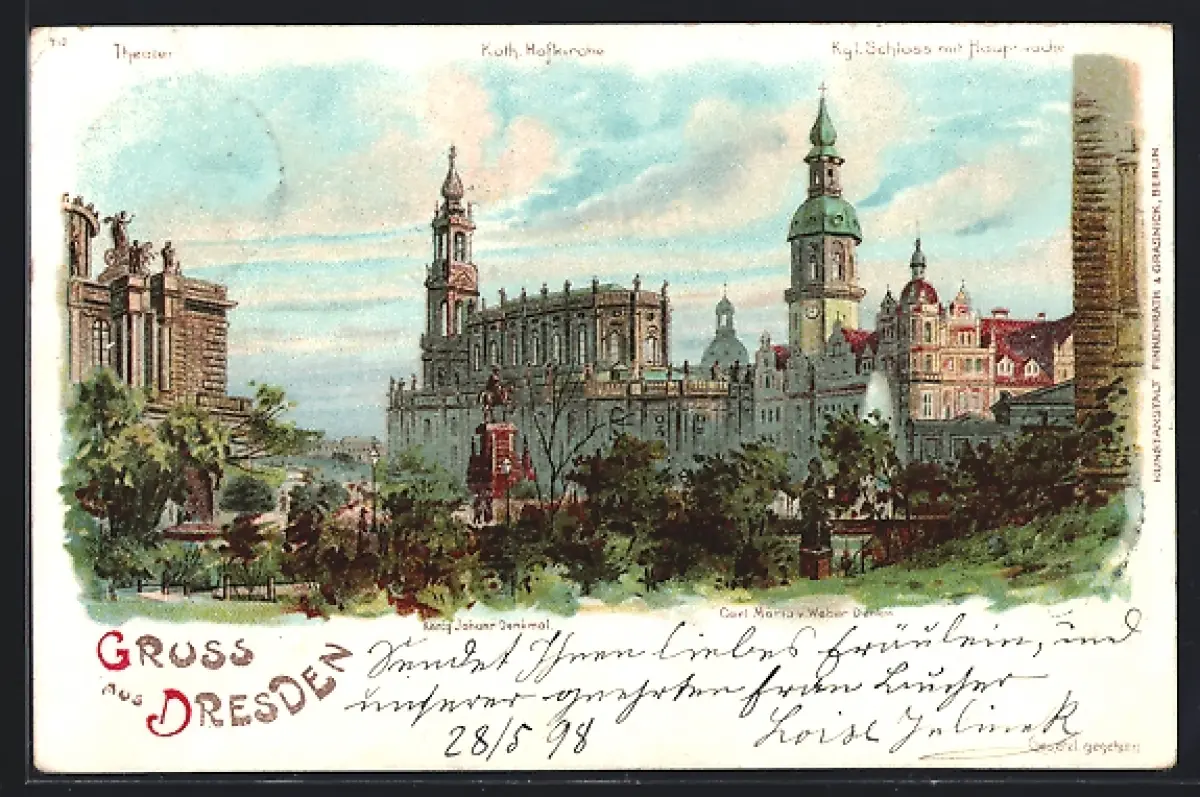 Theater
Kath. Hofkirche
Kgl. Schloss mit Hauptwache
KUNSTANSTALT FINKENRATH & GRASNICK, BERLIN
König Johann Denkmal
Carl Maria v. Weber Denkm
GRUSS
aus
DRESDEN
Sendet Ihnen liebes Fräulein, und
unserer geehrten Frau Bucher
28/5 98
Loise Jelinek
Gesetzl. gegeben